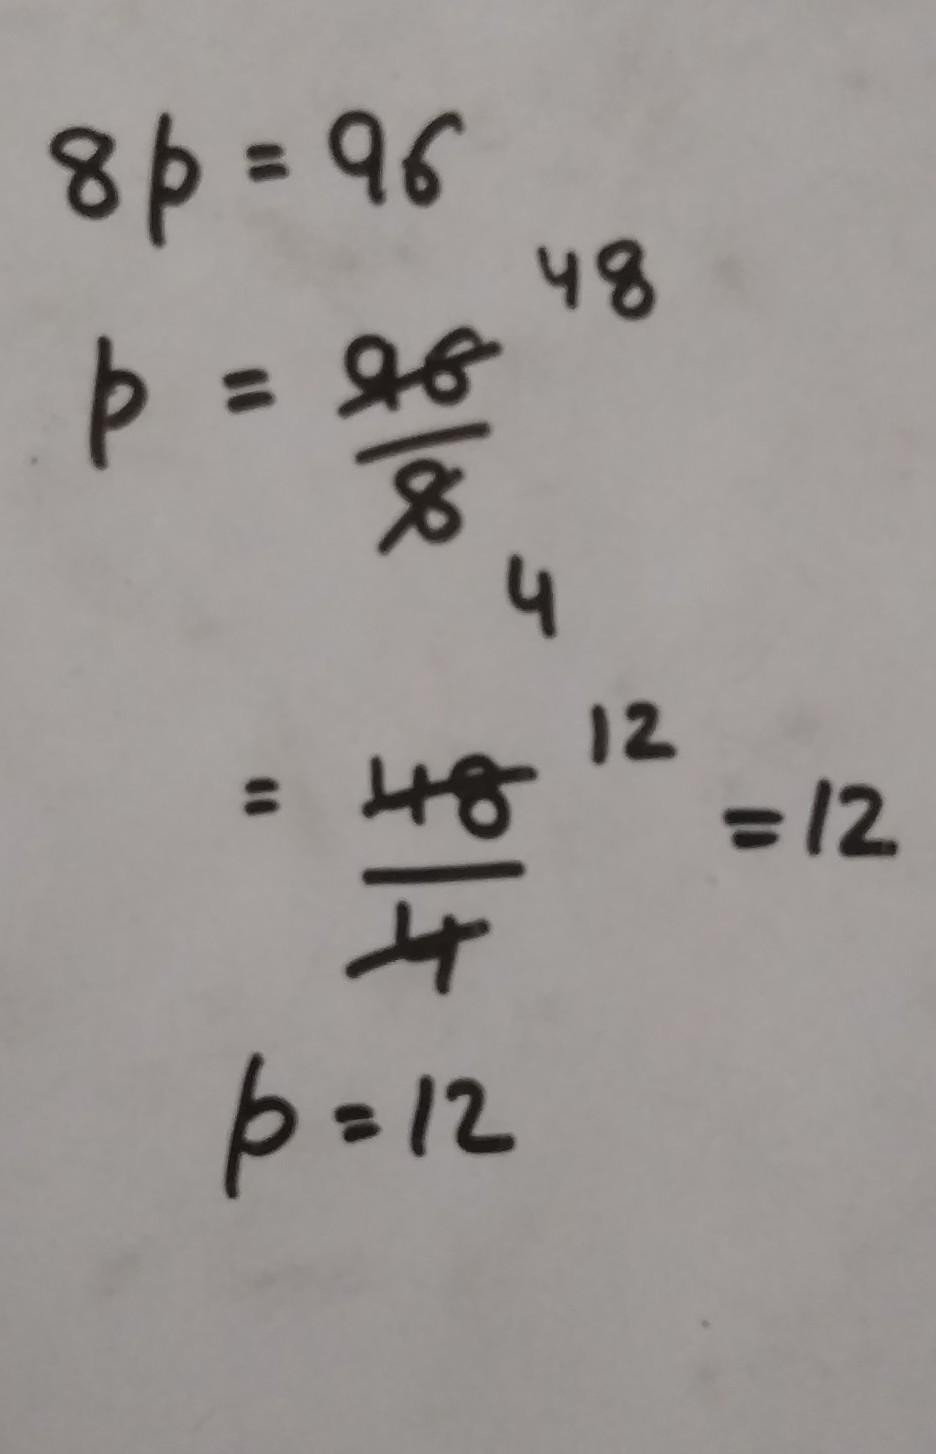 8p = 96
p = 96/8 48
4
= 48/4 12 = 12
p = 12